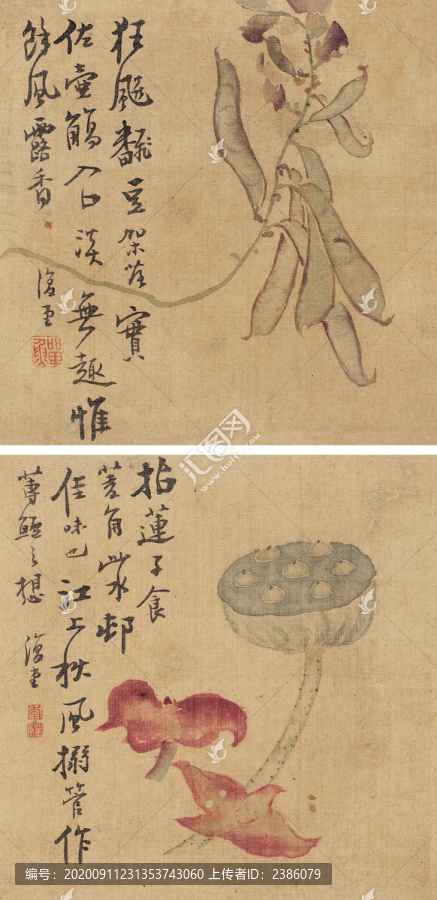 狂飈飜豆架落實
佐壺觴入口淡無趣惟
餘風露香
復堂
拈蓮子食
菱角此水邨
佳味也江上秋風搦管作
蓴鱸之想 復堂
汇图网
www.huitu.com
编号:20200911231353743060 上传者ID:2386079